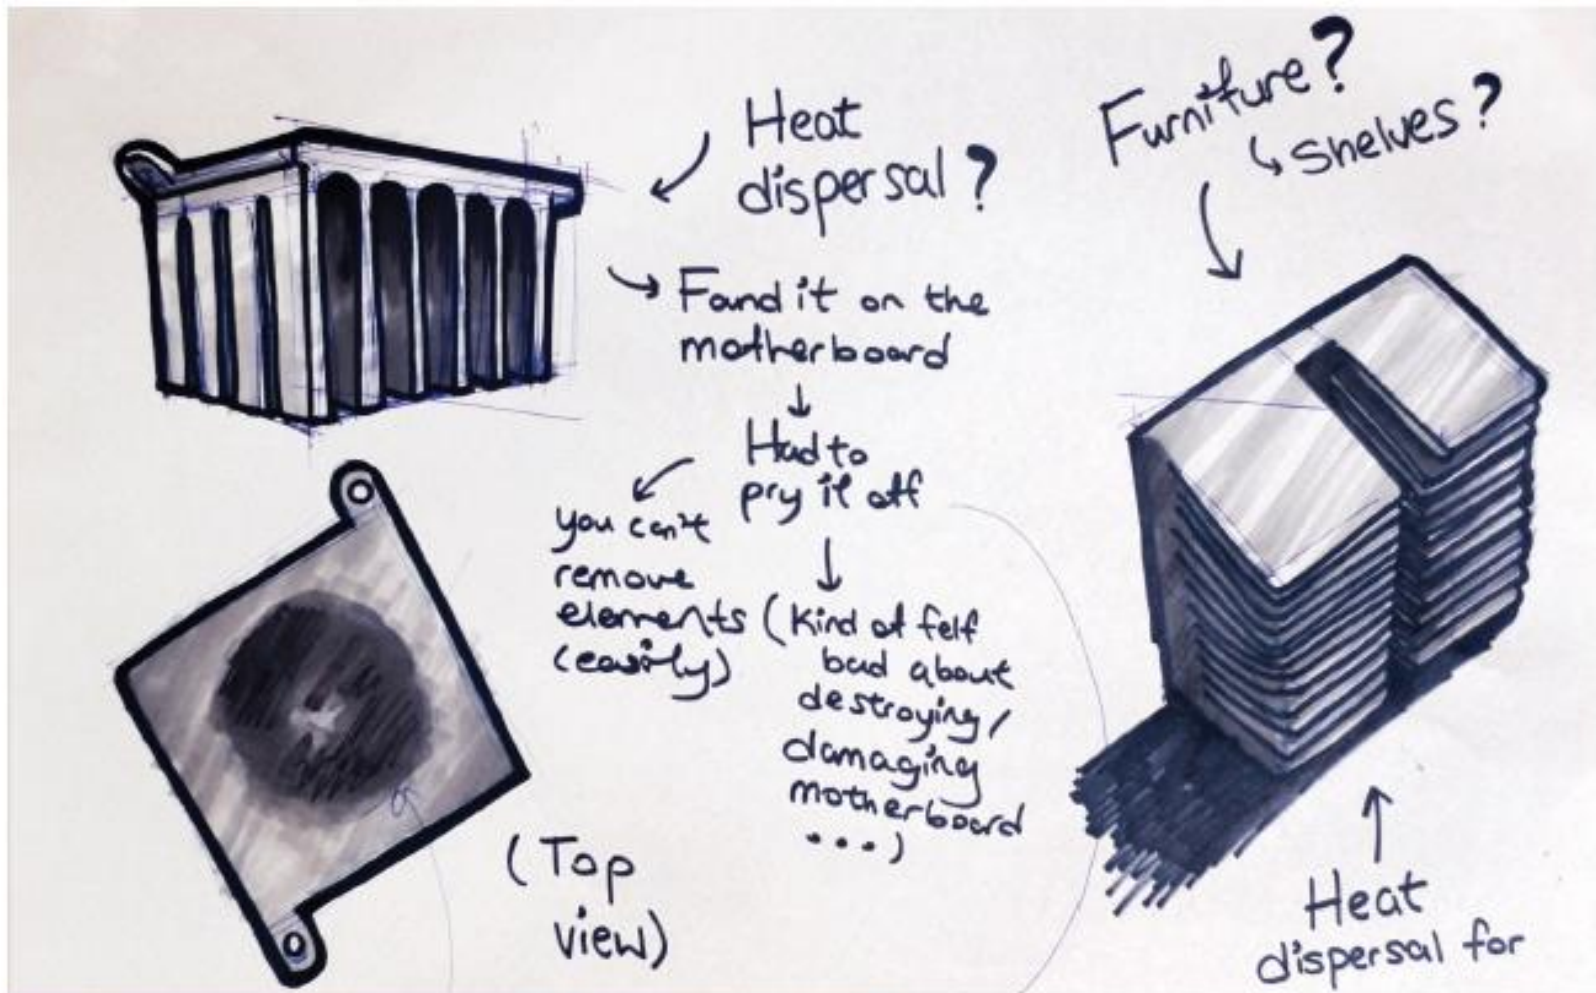 Heat
dispersal?
Found it on the
motherboard
Had to
pry it off
you can't
remove
elements
(easily)
(Kind of felt
bad about
destroying/
damaging
motherboard
...)
(Top
view)
Furniture?
Shelves?
Heat
dispersal for